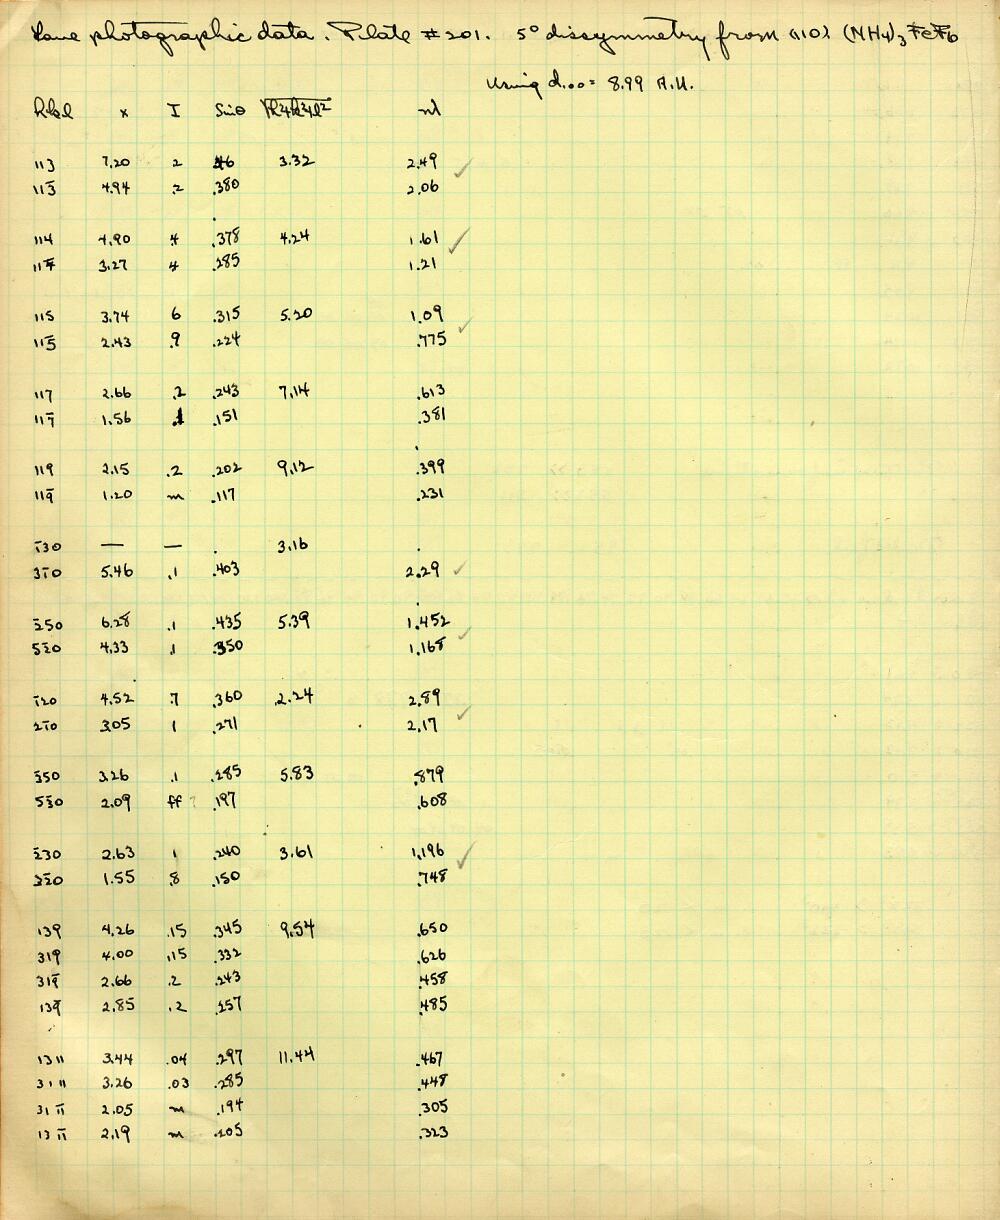 Laue photographic data. Plate #201. 5° dissymmetry from (110) (NH4)3 FeF6
Using d100 = 8.99 A.U.
hkl x I Sinθ √h²+k²+l² nλ
113 7.20 2 .46 3.32 2.49 ✓
113̄ 4.94 .2 .380 2.06
114 4.90 4 .378 4.24 1.61 ✓
114̄ 3.27 4 .285 1.21
115 3.74 6 .315 5.20 1.09 ✓
115̄ 2.43 .9 .224 .775
117 2.66 .2 .243 7.14 .613
117̄ 1.56 .1 .151 .381
119 2.15 .2 .202 9.12 .399
119̄ 1.20 m .117 .231
1̄30 — — . 3.16 .
31̄0 5.46 .1 .403 2.29 ✓
2̄50 6.28 .1 .435 5.39 1.452 ✓
52̄0 4.33 .1 .350 1.168
1̄20 4.52 .7 .360 2.24 2.89 ✓
21̄0 3.05 1 .271 2.17
3̄50 3.26 .1 .285 5.83 .879
53̄0 2.09 ff ? .197 .608
2̄30 2.63 1 .240 3.61 1.196 ✓
32̄0 1.55 .8 .150 .748
139 4.26 .15 .345 9.54 .650
319 4.00 .15 .332 .626
319̄ 2.66 .2 .243 .458
139̄ 2.85 .2 .257 .485
13 11 3.44 .04 .297 11.44 .467
3 1 11 3.26 .03 .285 .448
31 1̄1̄ 2.05 m .194 .305
13 1̄1̄ 2.19 m .205 .323